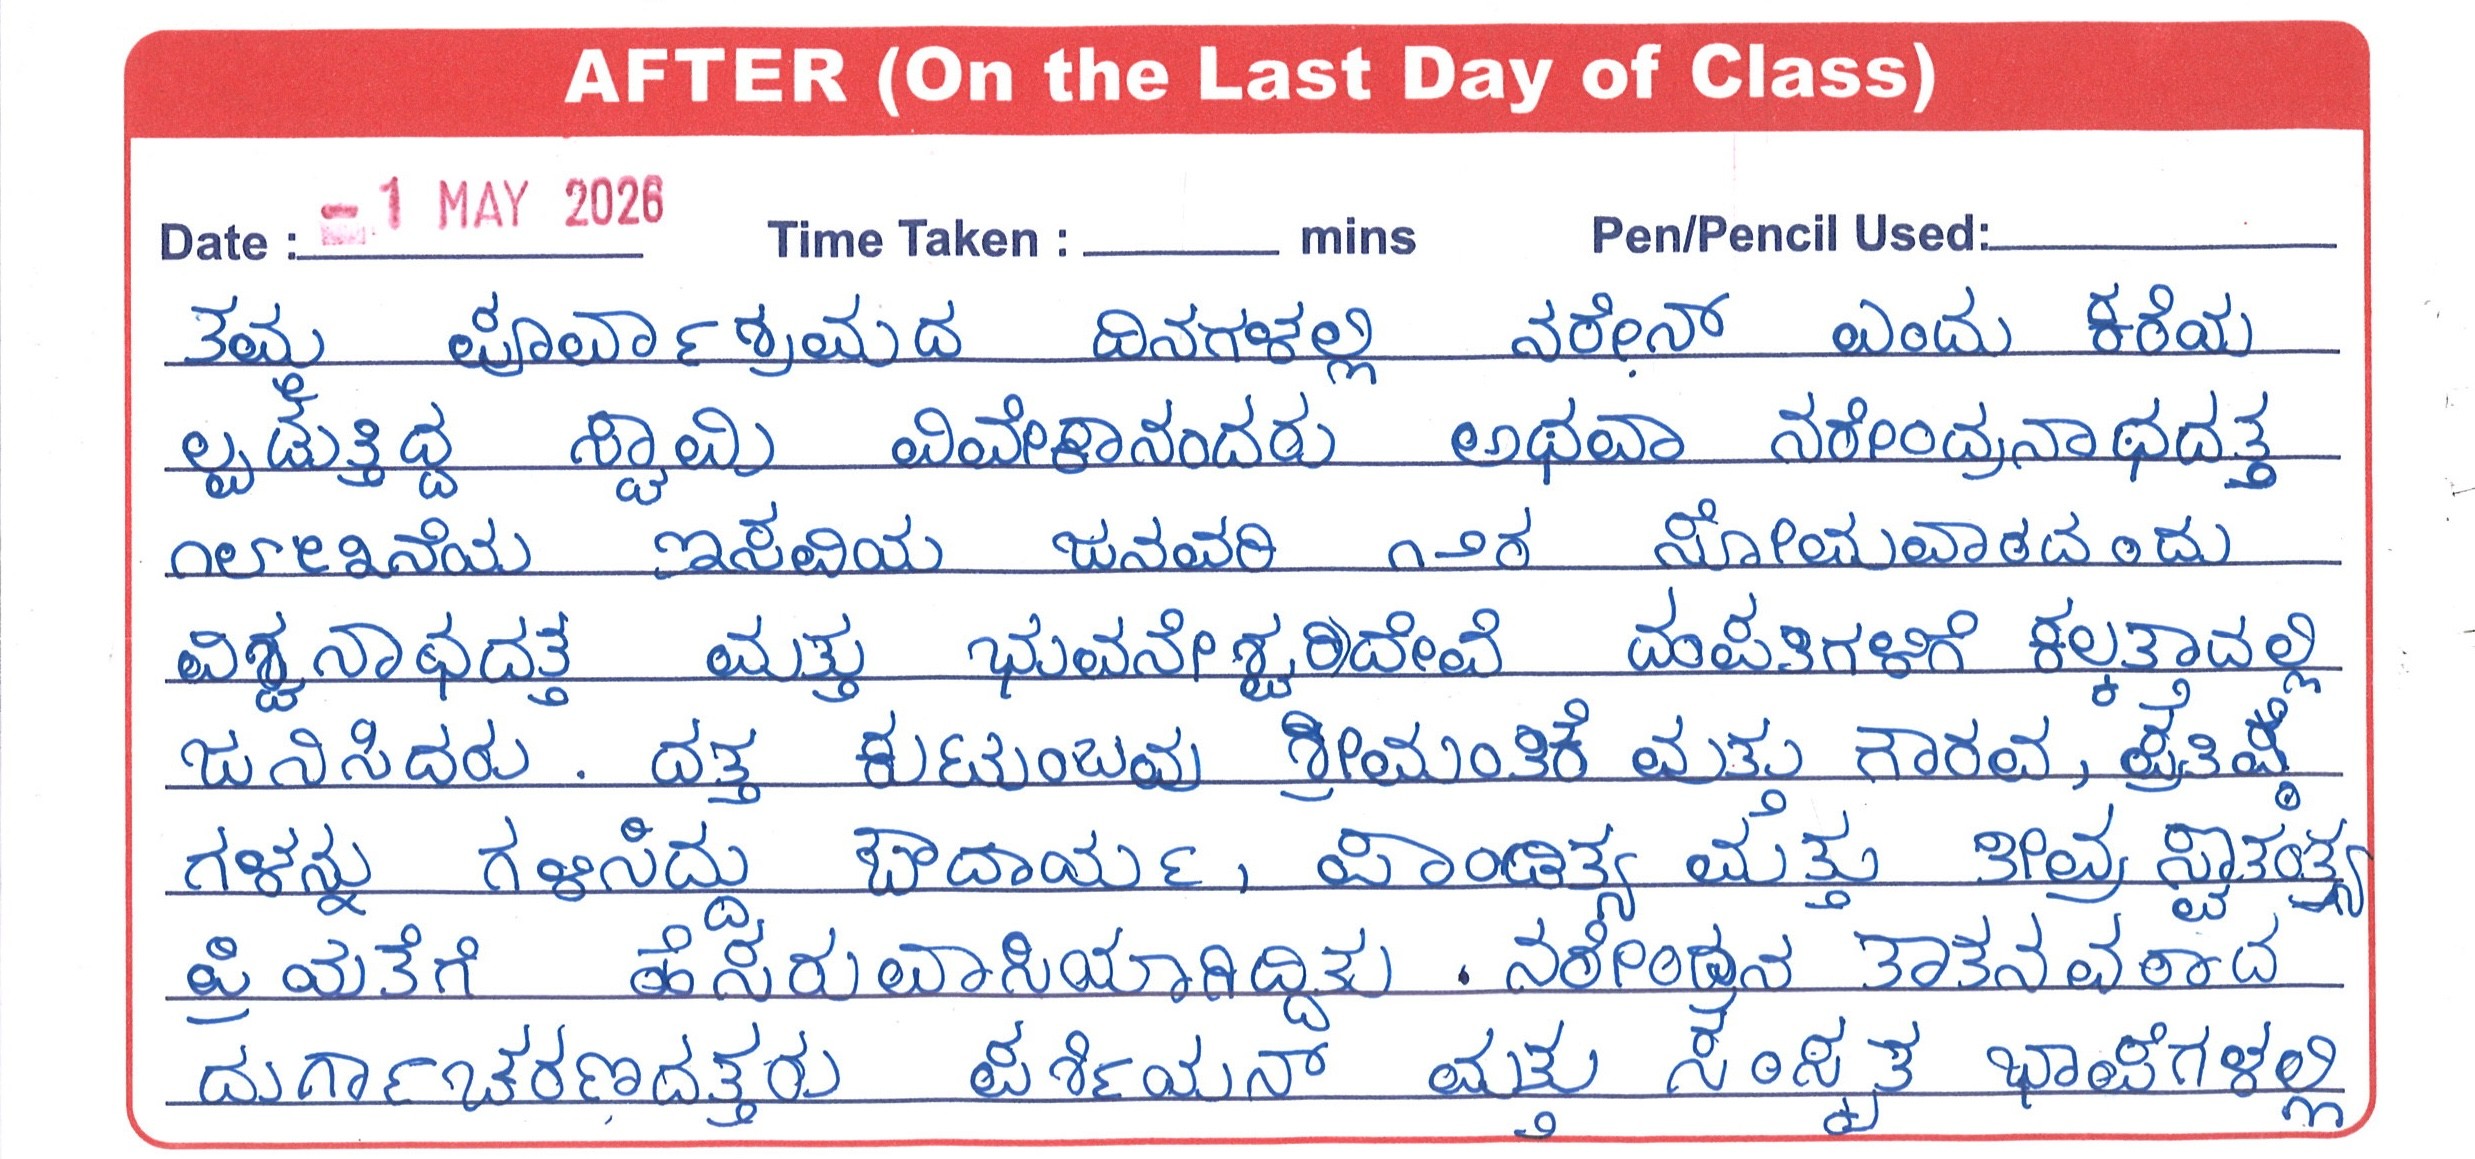 AFTER (On the Last Day of Class)
Date : -1 MAY 2026 Time Taken : ______ mins Pen/Pencil Used:______
ತಮ್ಮ ಪೂರ್ವಾಶ್ರಮದ ದಿನಗಳಲ್ಲಿ ನರೇನ್ ಎಂದು ಕರೆಯ
ಲ್ಪಡುತ್ತಿದ್ದ ಸ್ವಾಮಿ ವಿವೇಕಾನಂದರು ಅಥವಾ ನರೇಂದ್ರನಾಥದತ್ತ
೧೮೬೩ನೆಯ ಇಸವಿಯ ಜನವರಿ ೧೨ರ ಸೋಮವಾರದಂದು
ವಿಶ್ವನಾಥದತ್ತ ಮತ್ತು ಭುವನೇಶ್ವರಿದೇವಿ ದಂಪತಿಗಳಿಗೆ ಕಲ್ಕತ್ತಾದಲ್ಲಿ
ಜನಿಸಿದರು. ದತ್ತ ಕುಟುಂಬವು ಶ್ರೀಮಂತಿಕೆ ಮತ್ತು ಗೌರವ, ಪ್ರತಿಷ್ಠೆ
ಗಳನ್ನು ಗಳಿಸಿದ್ದು ಔದಾರ್ಯ, ಪಾಂಡಿತ್ಯ ಮತ್ತು ತೀವ್ರ ಸ್ವಾತಂತ್ರ್ಯ
ಪ್ರಿಯತೆಗೆ ಹೆಸರುವಾಸಿಯಾಗಿದ್ದಿತು. ನರೇಂದ್ರನ ತಾತನವರಾದ
ದುರ್ಗಾಚರಣದತ್ತರು ಪರ್ಶಿಯನ್ ಮತ್ತು ಸಂಸ್ಕೃತ ಭಾಷೆಗಳಲ್ಲಿ